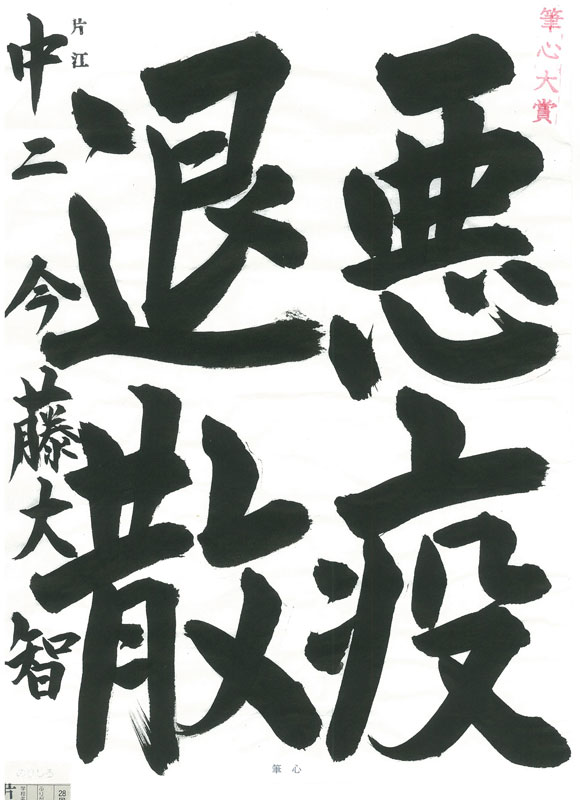 筆心大賞
悪疫
退散
片江
中二 今藤大智
筆心
28